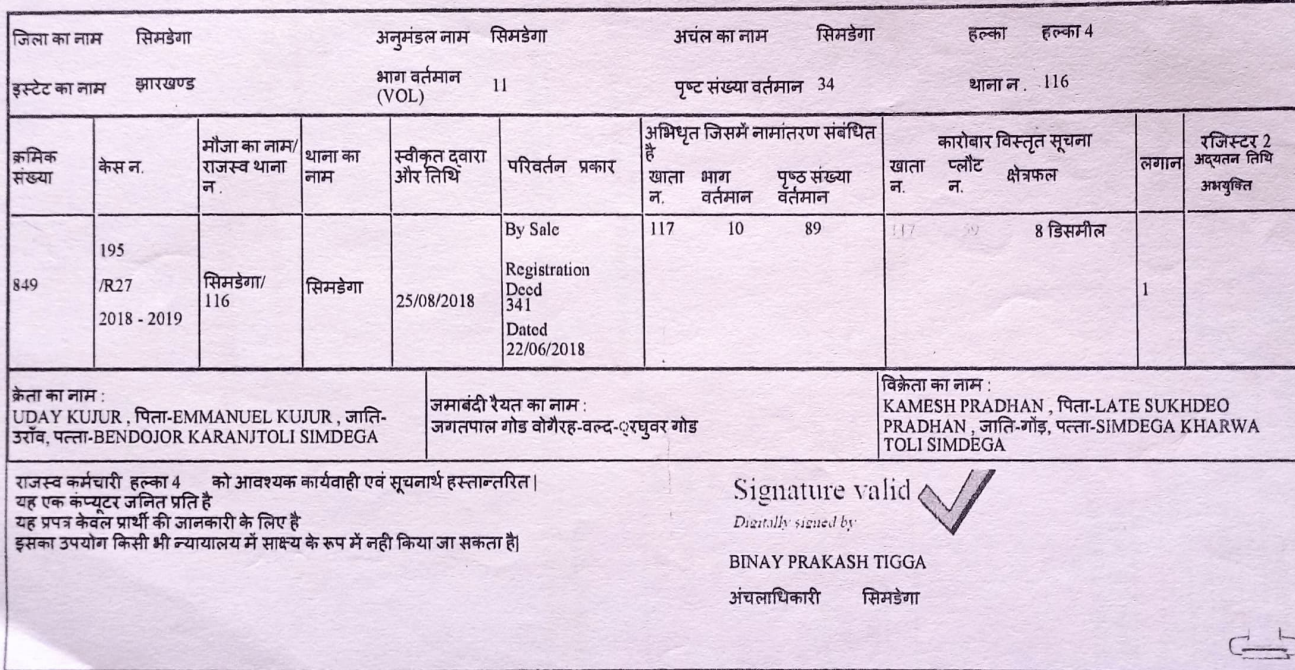 जिला का नाम सिमडेगा अनुमंडल नाम सिमडेगा अचंल का नाम सिमडेगा हल्का हल्का 4
इस्टेट का नाम झारखण्ड भाग वर्तमान (VOL) 11 पृष्ट संख्या वर्तमान 34 थाना न. 116
क्रमिक संख्या
केस न.
मौजा का नाम/ राजस्व थाना न.
थाना का नाम
स्वीकृत द्वारा और तिथि
परिवर्तन प्रकार
अभिधृत जिसमें नामांतरण संबंधित है
खाता न. भाग वर्तमान पृष्ठ संख्या वर्तमान
कारोबार विस्तृत सूचना
खाता न. प्लौट न. क्षेत्रफल
लगान
रजिस्टर 2 अद्यतन तिथि अभयुक्ति
849
195
/R27
2018 - 2019
सिमडेगा/
116
सिमडेगा
25/08/2018
By Sale
Registration
Deed
341
Dated
22/06/2018
117 10 89
117 59 8 डिसमील
1
क्रेता का नाम :
UDAY KUJUR , पिता-EMMANUEL KUJUR , जाति-
उराँव, पत्ता-BENDOJOR KARANJTOLI SIMDEGA
जमाबंदी रैयत का नाम :
जगतपाल गोड वोगैरह-वल्द-्रघुवर गोड
विक्रेता का नाम :
KAMESH PRADHAN , पिता-LATE SUKHDEO
PRADHAN , जाति-गोंड़, पत्ता-SIMDEGA KHARWA
TOLI SIMDEGA
राजस्व कर्मचारी हल्का 4 को आवश्यक कार्यवाही एवं सूचनार्थ हस्तान्तरित|
यह एक कंप्यूटर जनित प्रति है
यह प्रपत्र केवल प्रार्थी की जानकारी के लिए है
इसका उपयोग किसी भी न्यायालय में साक्ष्य के रूप में नही किया जा सकता है|
Signature valid
Digitally signed by
BINAY PRAKASH TIGGA
अंचलाधिकारी सिमडेगा